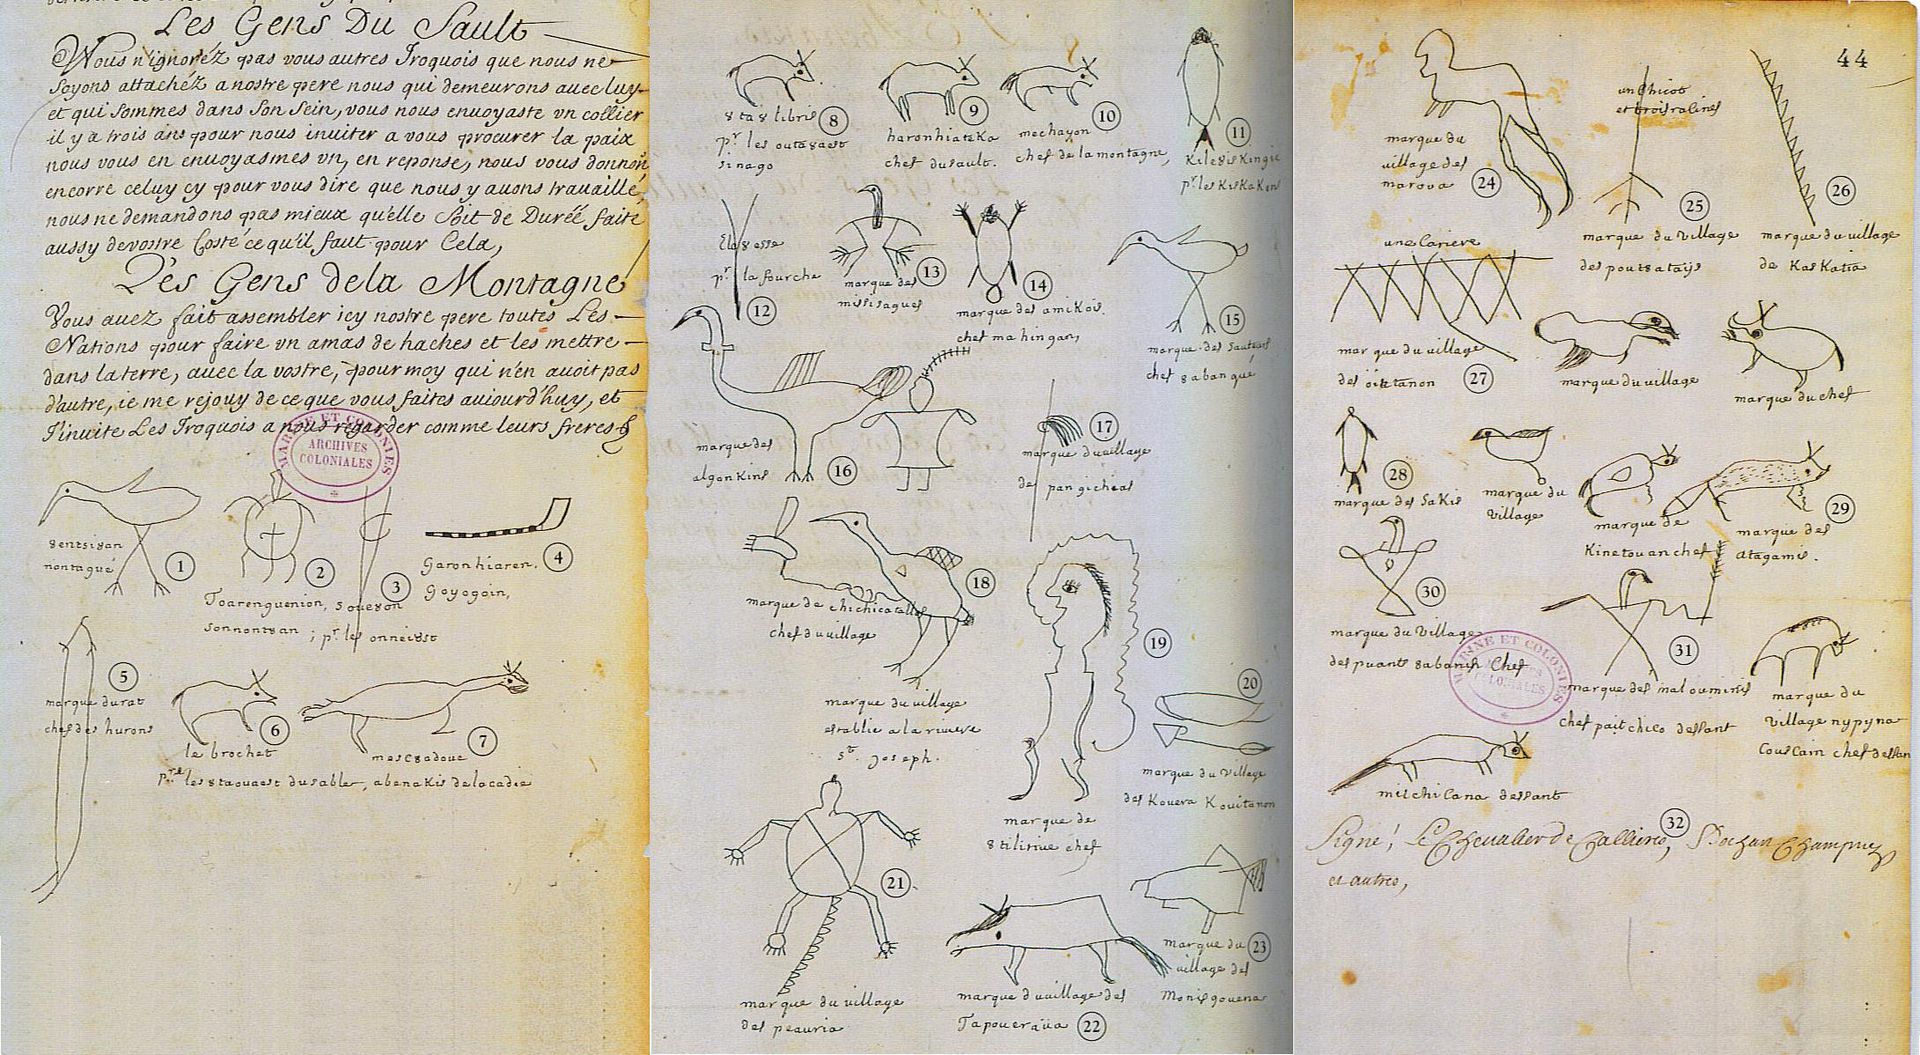 Les Gens Du Sault
Vous n'ignoréz pas vous autres Iroquois que nous ne
soyons attachéz a nostre pere nous qui demeurons avec luy
et qui sommes dans son sein, vous nous enuoyaste vn collier
il y a trois ans pour nous inuiter a vous procurer la paix
nous vous en enuoyasmes vn, en reponse, nous vous donnon,
encorre celuy cy pour vous dire que nous y auons trauaillé,
nous ne demandons pas mieux qu'elle soit de Duréé faite
aussy de vostre Costé ce qu'il faut pour Cela,
Les Gens de la Montagne
Vous auez fait assembler icy nostre pere toutes Les
Nations pour faire vn amas de haches et les mettre
dans la terre, auec la vostre, pour moy qui n'en auoit pas
d'autre, ie me rejouy de ce que vous faites aujourd'huy, et
J'inuite Les Iroquois a nous regarder comme leurs freres
MARINE ET COLONIES
ARCHIVES
COLONIALES
8entsi8an
nontagué
1
2
Toarenguenion,
sonnont8an ;
3
so8e8on
pr. les onnei8st
4
Garonhiaren.
Goyogoin,
5
marque du rat
chef des hurons
6
le brochet
pre les 8ta8uaest du sable,
7
mesc8adoue
abenakis de lacadie
8
8ta8libris
pr. les outa8aest
sinago
9
haronhiateka
chef du sault.
10
mechayon
chef de la montagne,
11
Kile8iskingie
pr. les KisKaKons
12
Ela8esse
pr. la fourche
13
marque des
missisagues
14
marque des amikois.
chef mahingan,
15
marque des sauteurs
chef 8abangué
16
marque des
algonkins
17
marque du village
de pangicheas
18
marque de chichicatalle
chef du village
marque du village
establie a la riviere
st. joseph.
19
marque de
8tilirine chef
20
marque du village
des Kouera Kouitanon
21
marque du village
des peauria
22
marque du village des
Tapoueraüa
23
marque du
village des
Monisgouena
44
24
marque du
village des
maroua
25
un chicot
et trois racines
marque du village
des pout8atais
26
marque du village
de KasKatia
une Cariere
27
marque du village
des 8iatanon
marque du village
marque du chef
28
marque des Sakis
marque du
village
marque de
Kinetouan chef
29
marque des
atagamis.
30
marque du village
des puants 8abanch Chef
31
marque des malouminis
chef paitchico dessant
marque du
village nypyna
MARINE ET COLONIES
COLONIALES
mitchicana dessant
32
Signé, Le Chevalier de Callieres,
et autres,